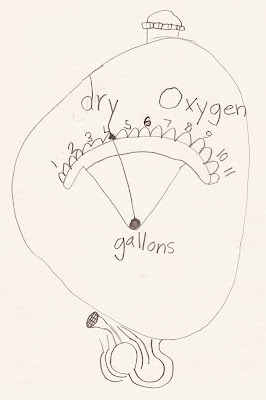 dry Oxygen
1 2 3 4 5 6 7 8 9 10 11
gallons